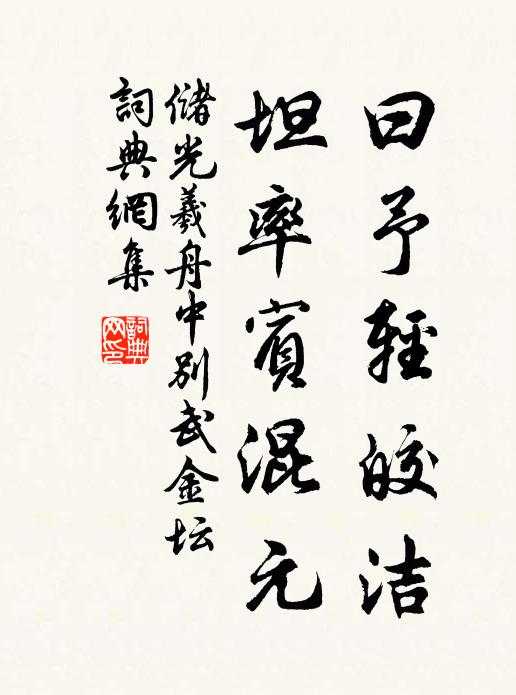 曰予輕皎洁
坦率賓混元
儲光羲舟中別武金坛
詞典網集
詞典
网印